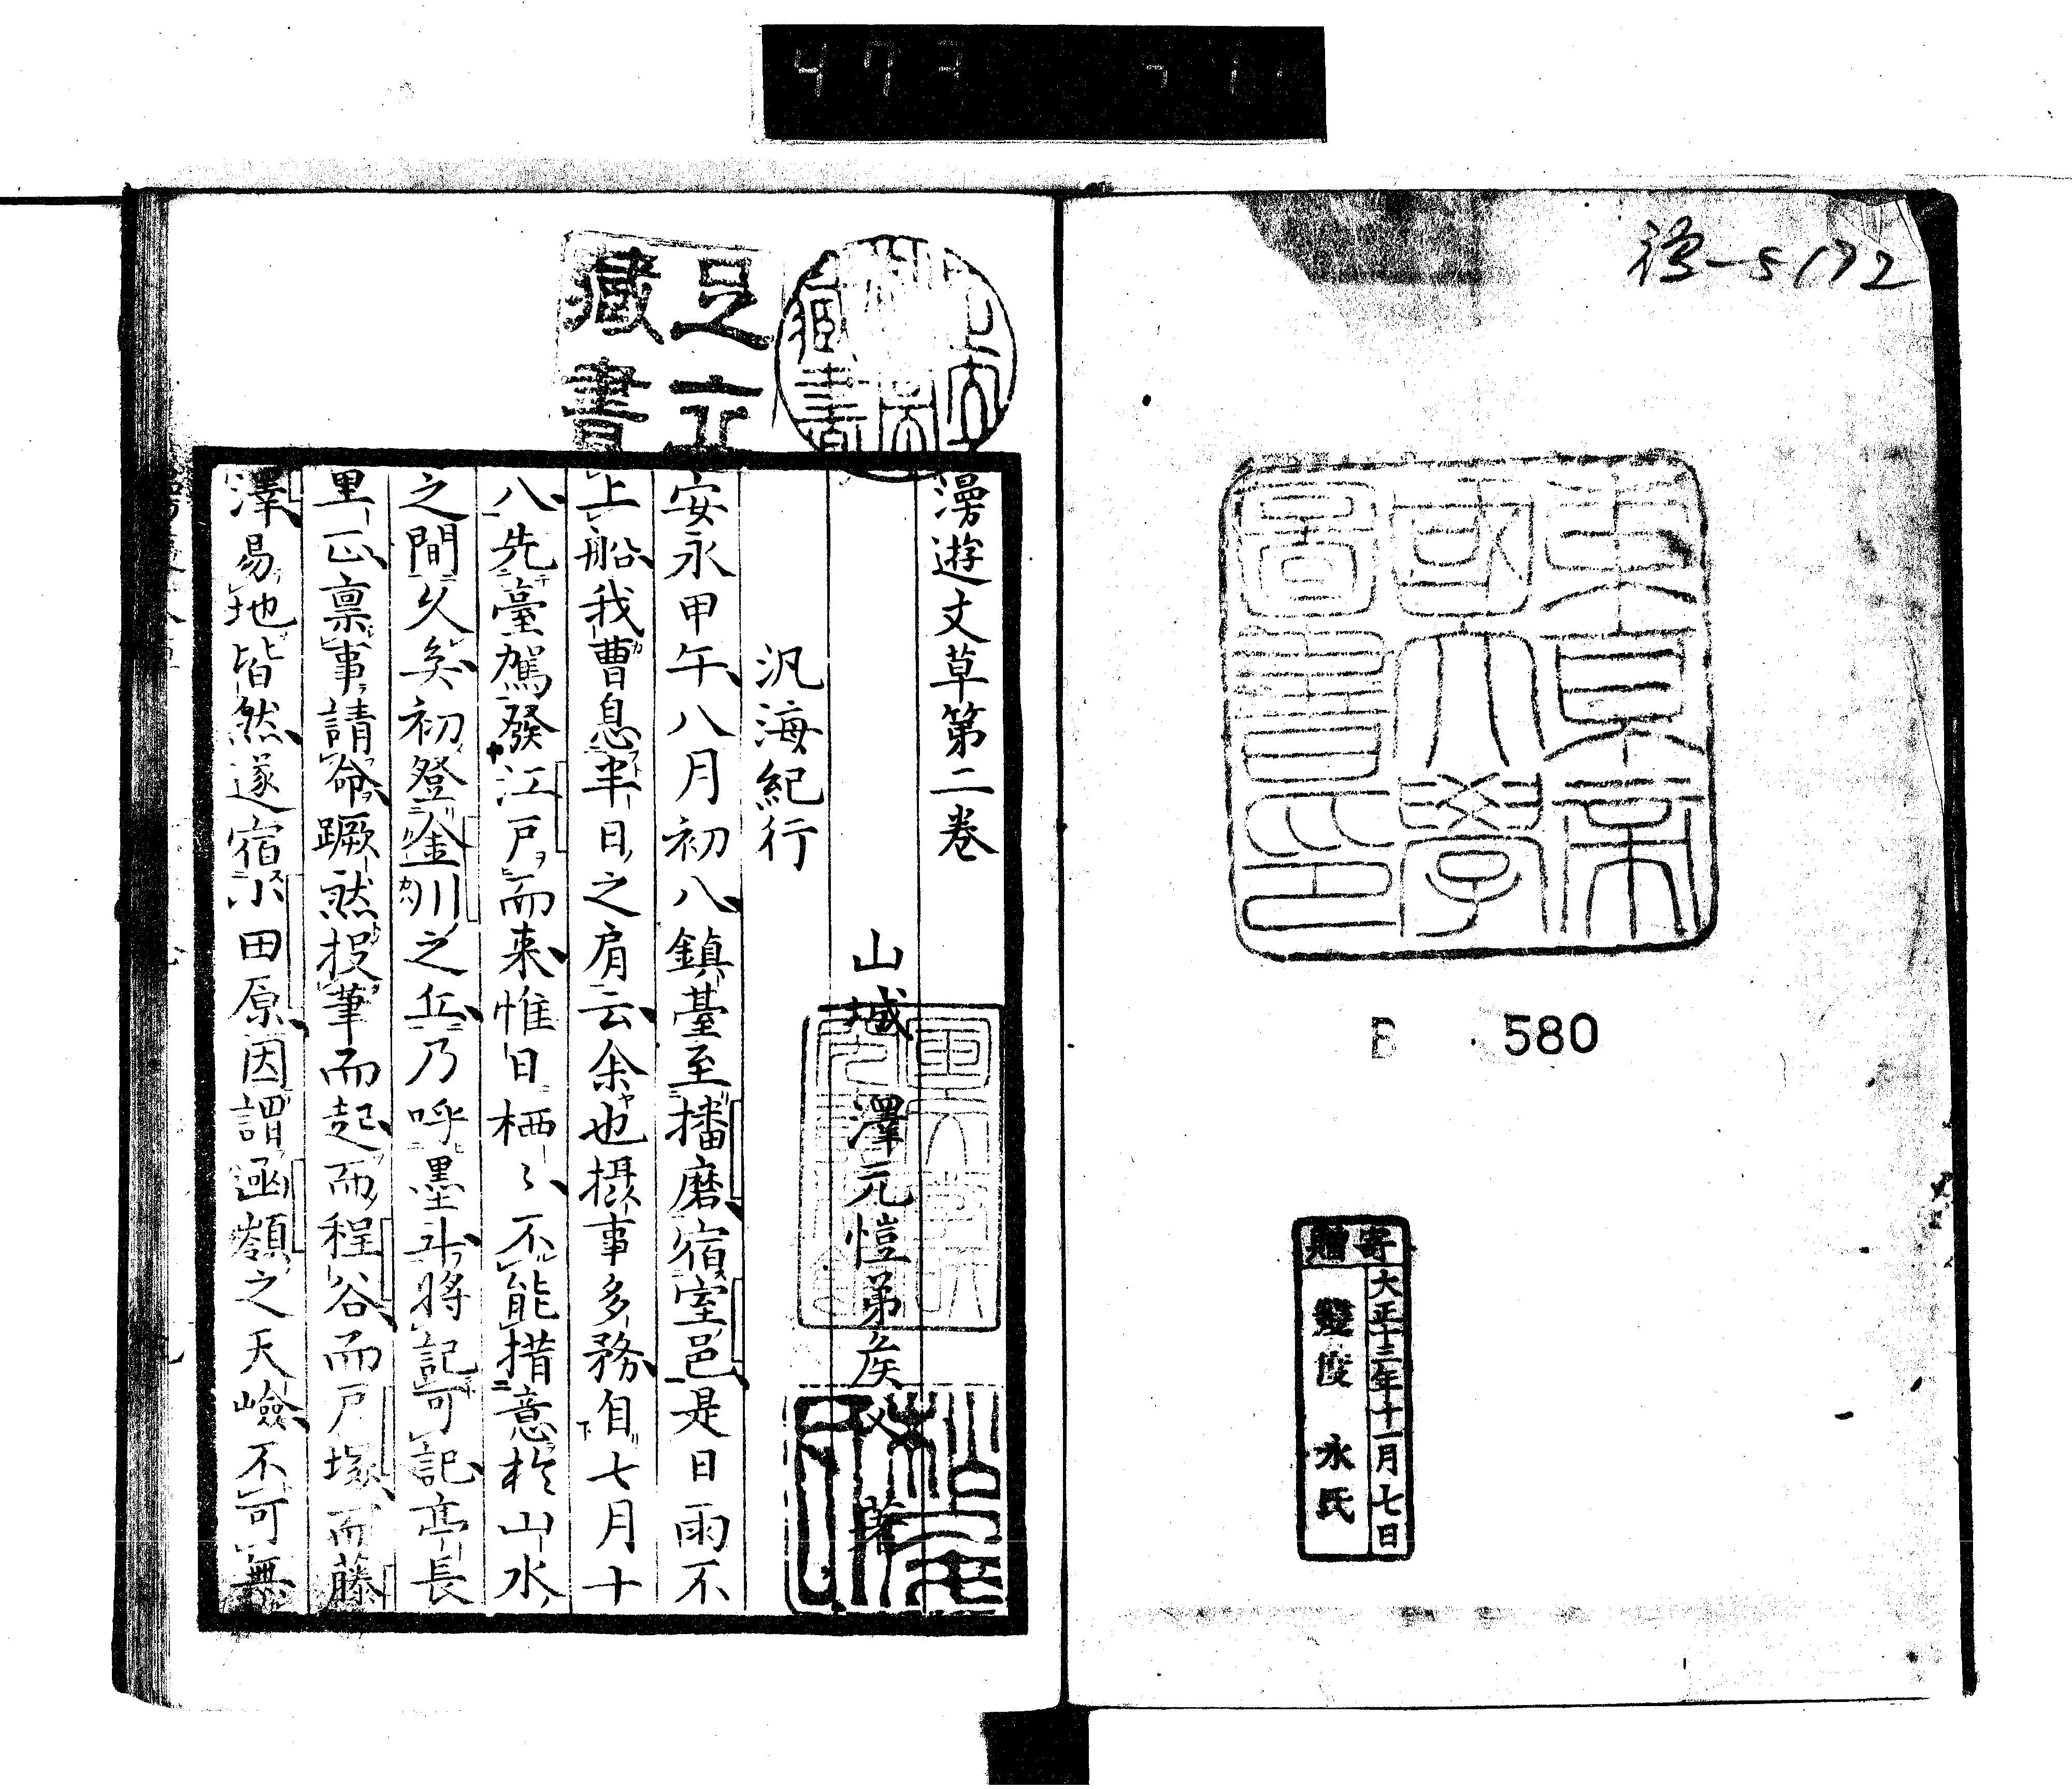 禅-5172
東京帝
國大學
圖書印
B 580
寄贈
大正十三年十一月七日
永氏
足立
藏書
藏書
漫遊文草第二卷
山城 澤元愷弟侯父著
汎海紀行
安永甲午八月初八鎮臺至播磨宿室邑是日雨不
上船我曹息半日之肩云余也攝事多務自七月十
八先臺駕發江戶而来惟日栖〻不能措意於山水
之間久矣初登金川之丘乃呼墨斗將記可記亭長
里正稟事請命蹶然投筆而起而程谷而戶塚而藤
澤易地皆然遂宿小田原因謂函嶺之天嶮不可無